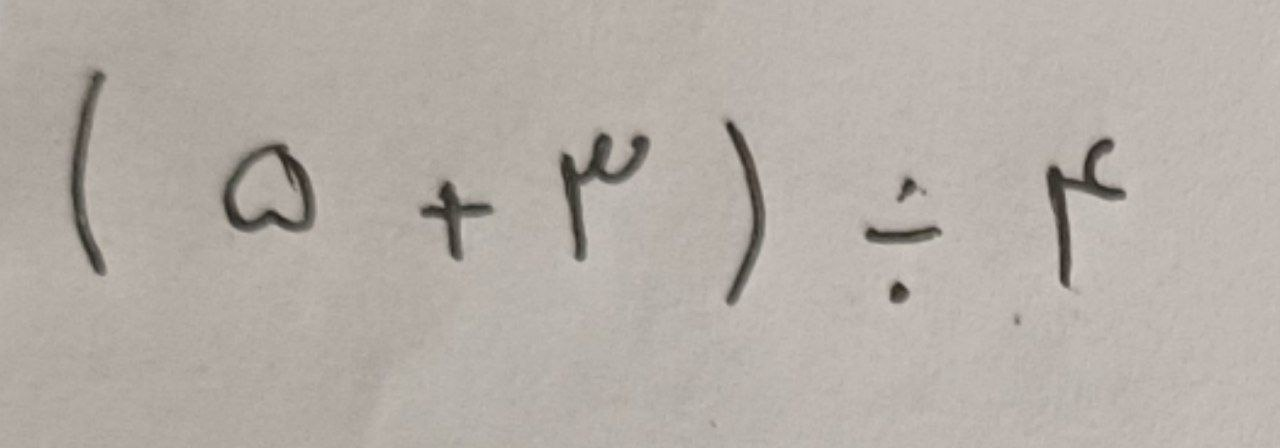 ( ۵ + ۳ ) ÷ ۴